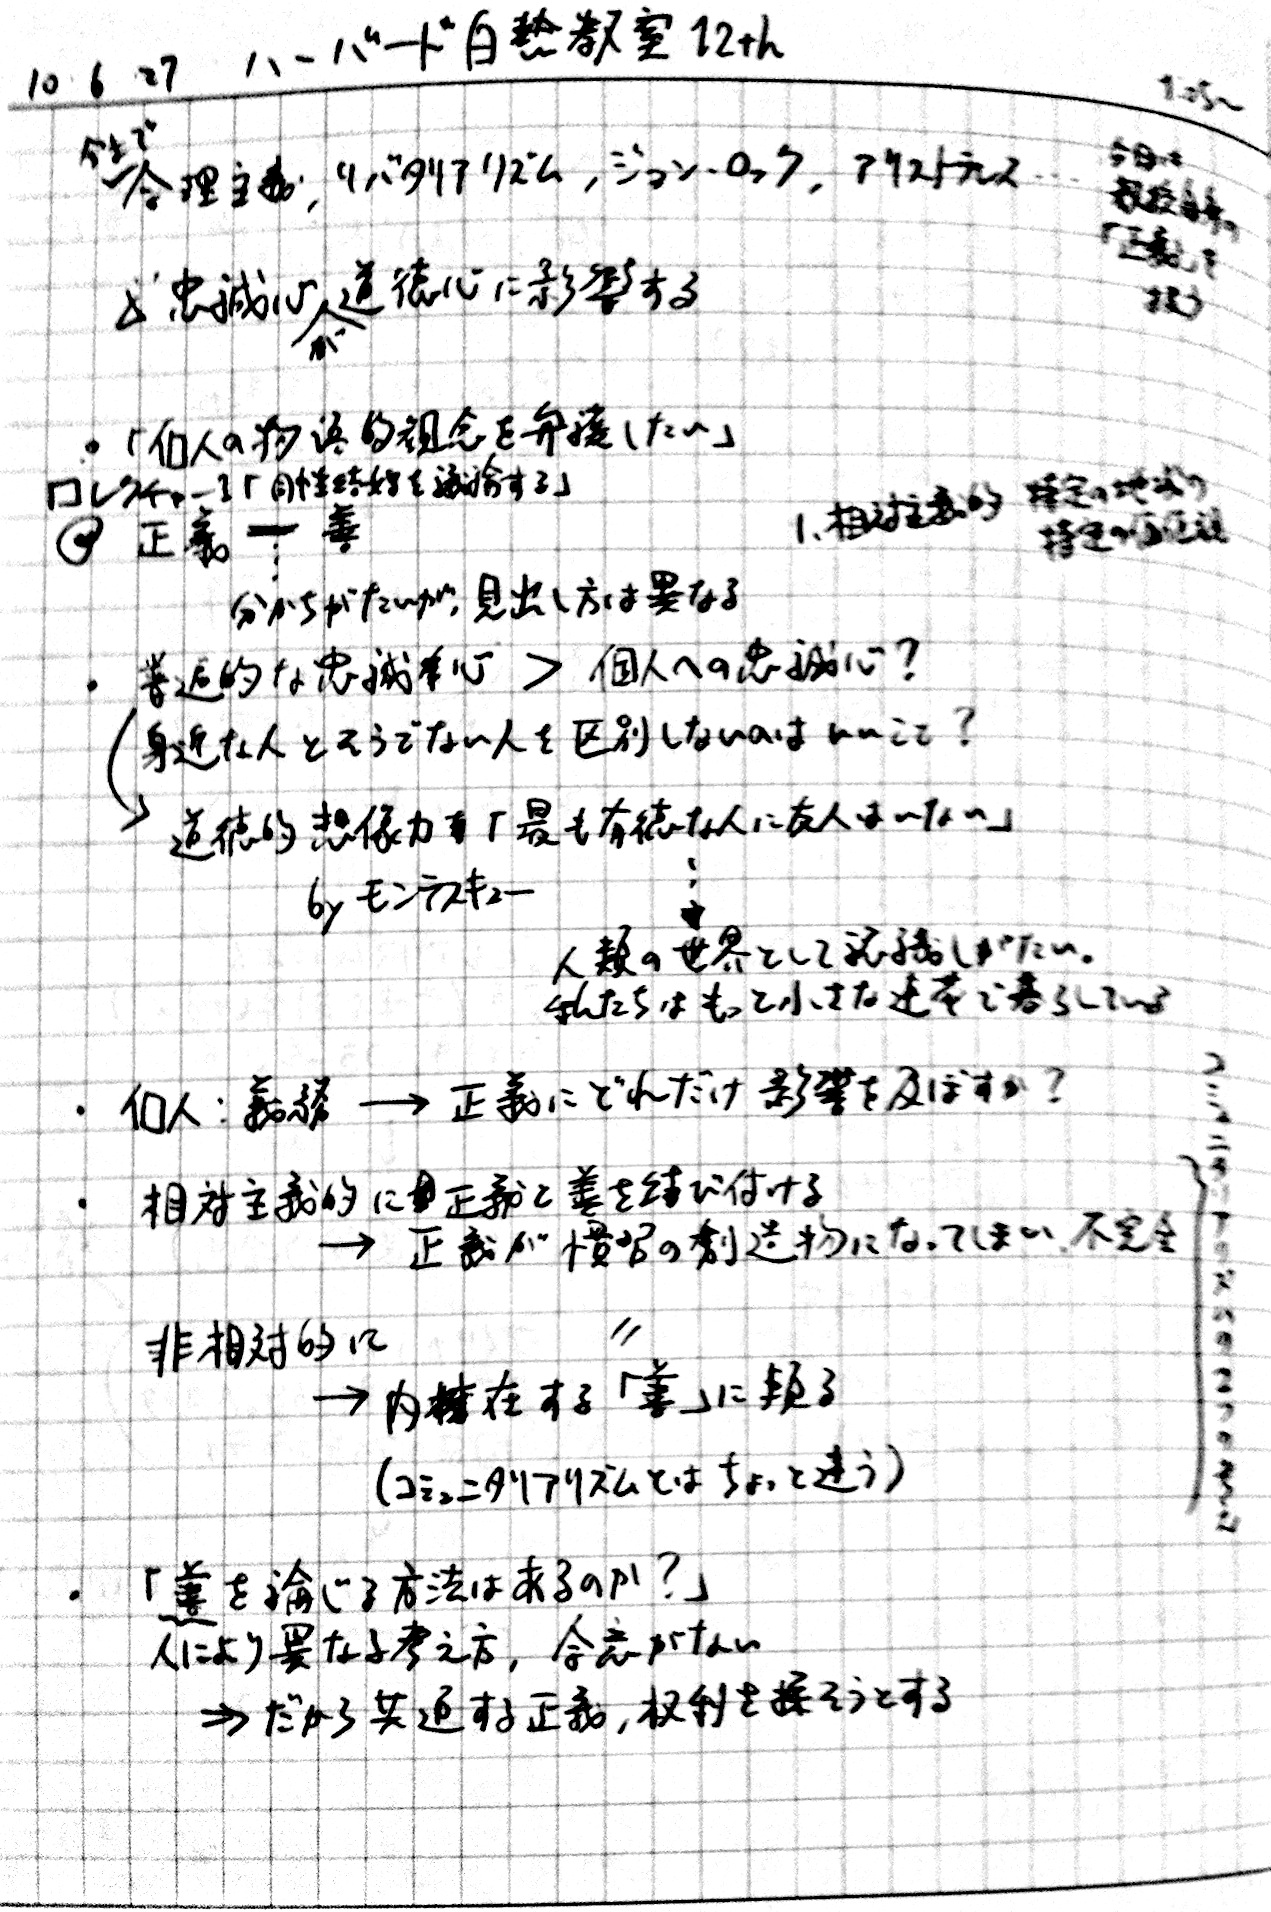 10 6 27 ハーバード白熱教室 12th
1:05〜
今まで
合理主義, リバタリアリズム, ジョン・ロック, アリストテレス…
今日は
教授自身の
「正義」を
扱う
忠誠心が道徳心に影響する
・「個人の物語的観念を弁護したい」
ロレクチャー1「同性結婚を議論する」
正義 ー 善
1. 相対主義的 特定の地域の
特定の価値観
分かちがたいが, 見出し方は異なる
・普遍的な忠誠心 > 個人への忠誠心?
身近な人とそうでない人を区別しないのはいいこと?
道徳的想像力 「最も有徳な人に友人はいない」
by モンテスキュー
人類の世界として認識しがたい。
私たちはもっと小さな連帯で暮らしている
・個人: 義務 → 正義にどれだけ影響を及ぼすか?
・相対主義的に正義と善を結び付ける
→ 正義が慣習の創造物になってしまい、不完全
非相対的に 〃
→ 内在する「善」に頼る
(コミュニタリアリズムとはちょっと違う)
コミュニタリアリズムの2つの
・「善を論じる方法はあるのか?」
人により異なる考え方, 合意がない
⇒ だから共通する正義, 権利を探そうとする